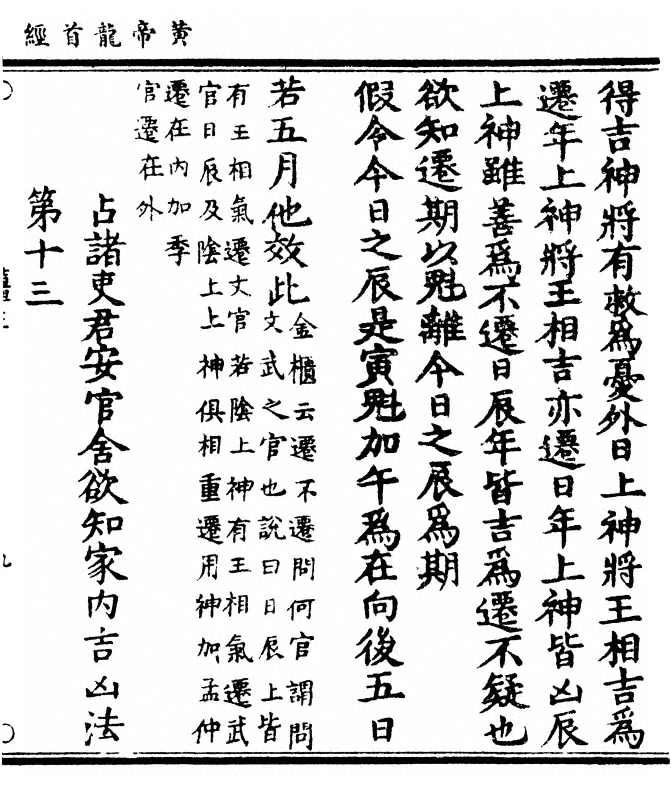 黄帝龍首經
得吉神將有救爲憂外日上神將王相吉爲
遷年上神將王相吉亦遷日年上神皆凶辰
上神雖善爲不遷日辰年皆吉爲遷不疑也
欲知遷期以魁離今日之辰爲期
假令今日之辰是寅魁加午爲在向後五日
若五月他效此金櫃云遷不遷問何官謂問
文武之官也說曰日辰上皆
有王相氣遷文官若陰上神有王相氣遷武
官日辰及陰上上神俱相重遷用神加孟仲
遷在內加季
官遷在外
占諸吏君安官舍欲知家內吉凶法
第十三